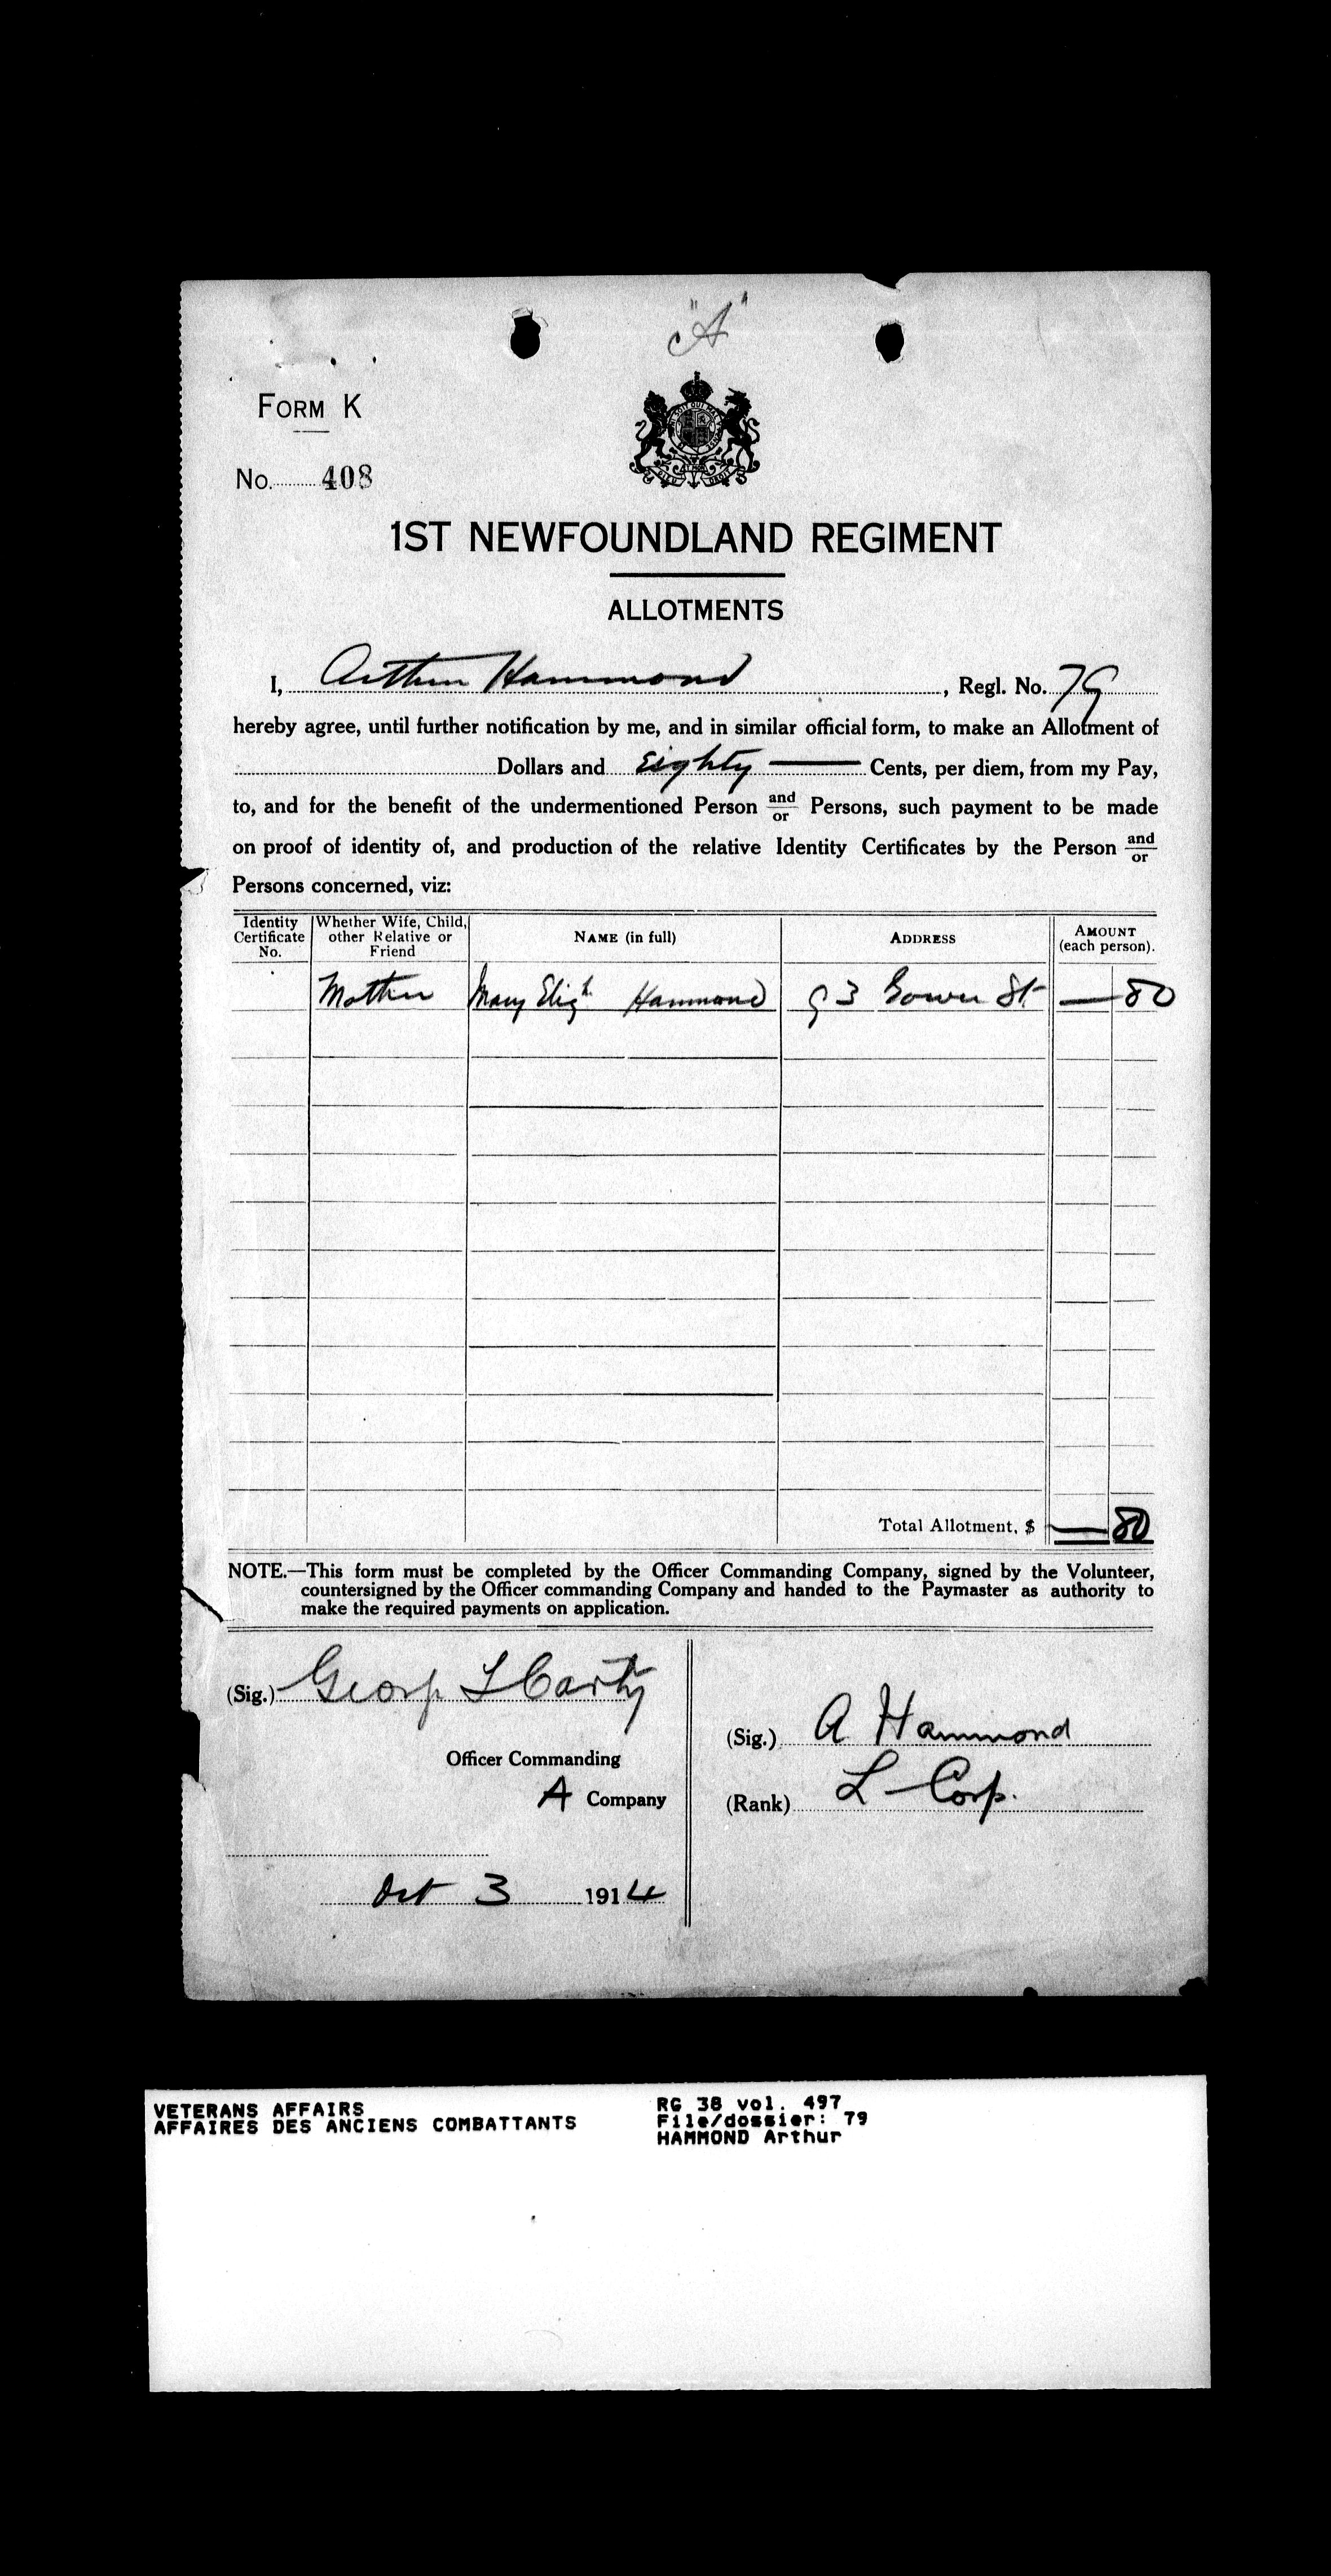 "A"
FORM K
No. 408
1ST NEWFOUNDLAND REGIMENT
ALLOTMENTS
I, Arthur Hammond, Regl. No. 79
hereby agree, until further notification by me, and in similar official form, to make an Allotment of
Dollars and Eighty — Cents, per diem, from my Pay,
to, and for the benefit of the undermentioned Person and/or Persons, such payment to be made
on proof of identity of, and production of the relative Identity Certificates by the Person and/or
Persons concerned, viz:
Identity Certificate No.
Whether Wife, Child, other Relative or Friend
NAME (in full)
ADDRESS
AMOUNT (each person).
Mother Mary Elizh Hammond 93 Gower St — 80
Total Allotment, $ — 80
NOTE.—This form must be completed by the Officer Commanding Company, signed by the Volunteer,
countersigned by the Officer commanding Company and handed to the Paymaster as authority to
make the required payments on application.
(Sig.) George T Carty
(Sig.) A Hammond
Officer Commanding
A Company
(Rank) L-Corp.
Oct 3 1914
VETERANS AFFAIRS
AFFAIRES DES ANCIENS COMBATTANTS
RG 38 vol. 497
File/dossier: 79
HAMMOND Arthur